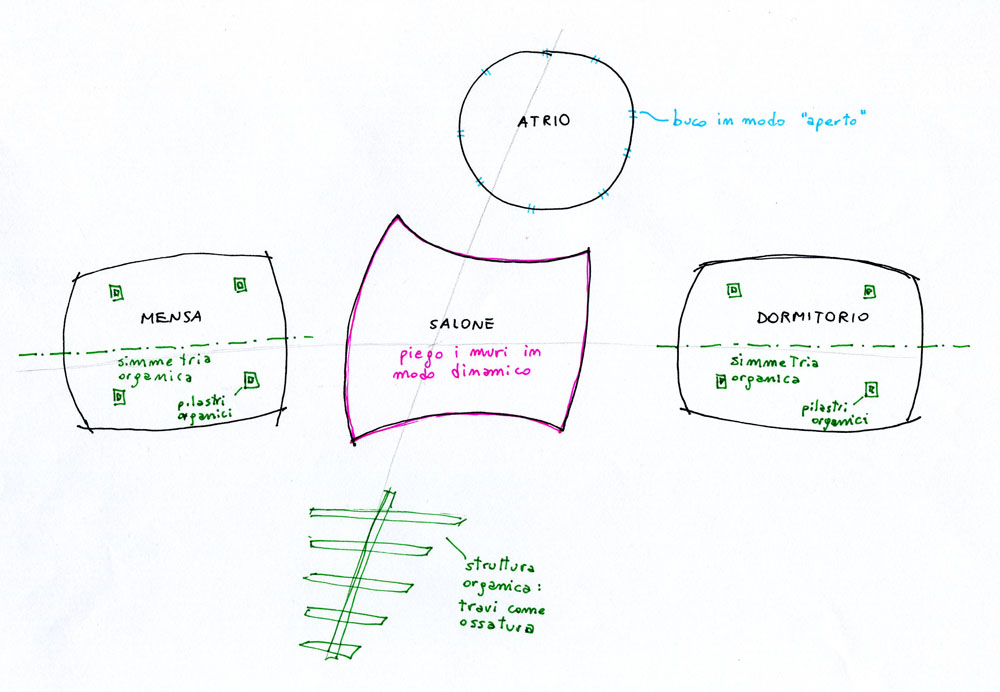 ATRIO
buco in modo "aperto"
MENSA
simmetria
organica
pilastri
organici
SALONE
piego i muri in
modo dinamico
DORMITORIO
simmetria
organica
pilastri
organici
struttura
organica:
travi come
ossatura